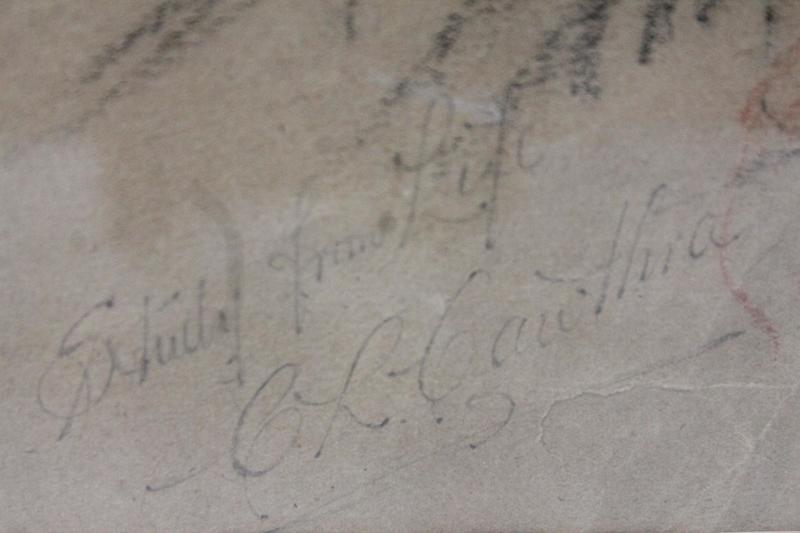 Study from Life
C L Cawthra